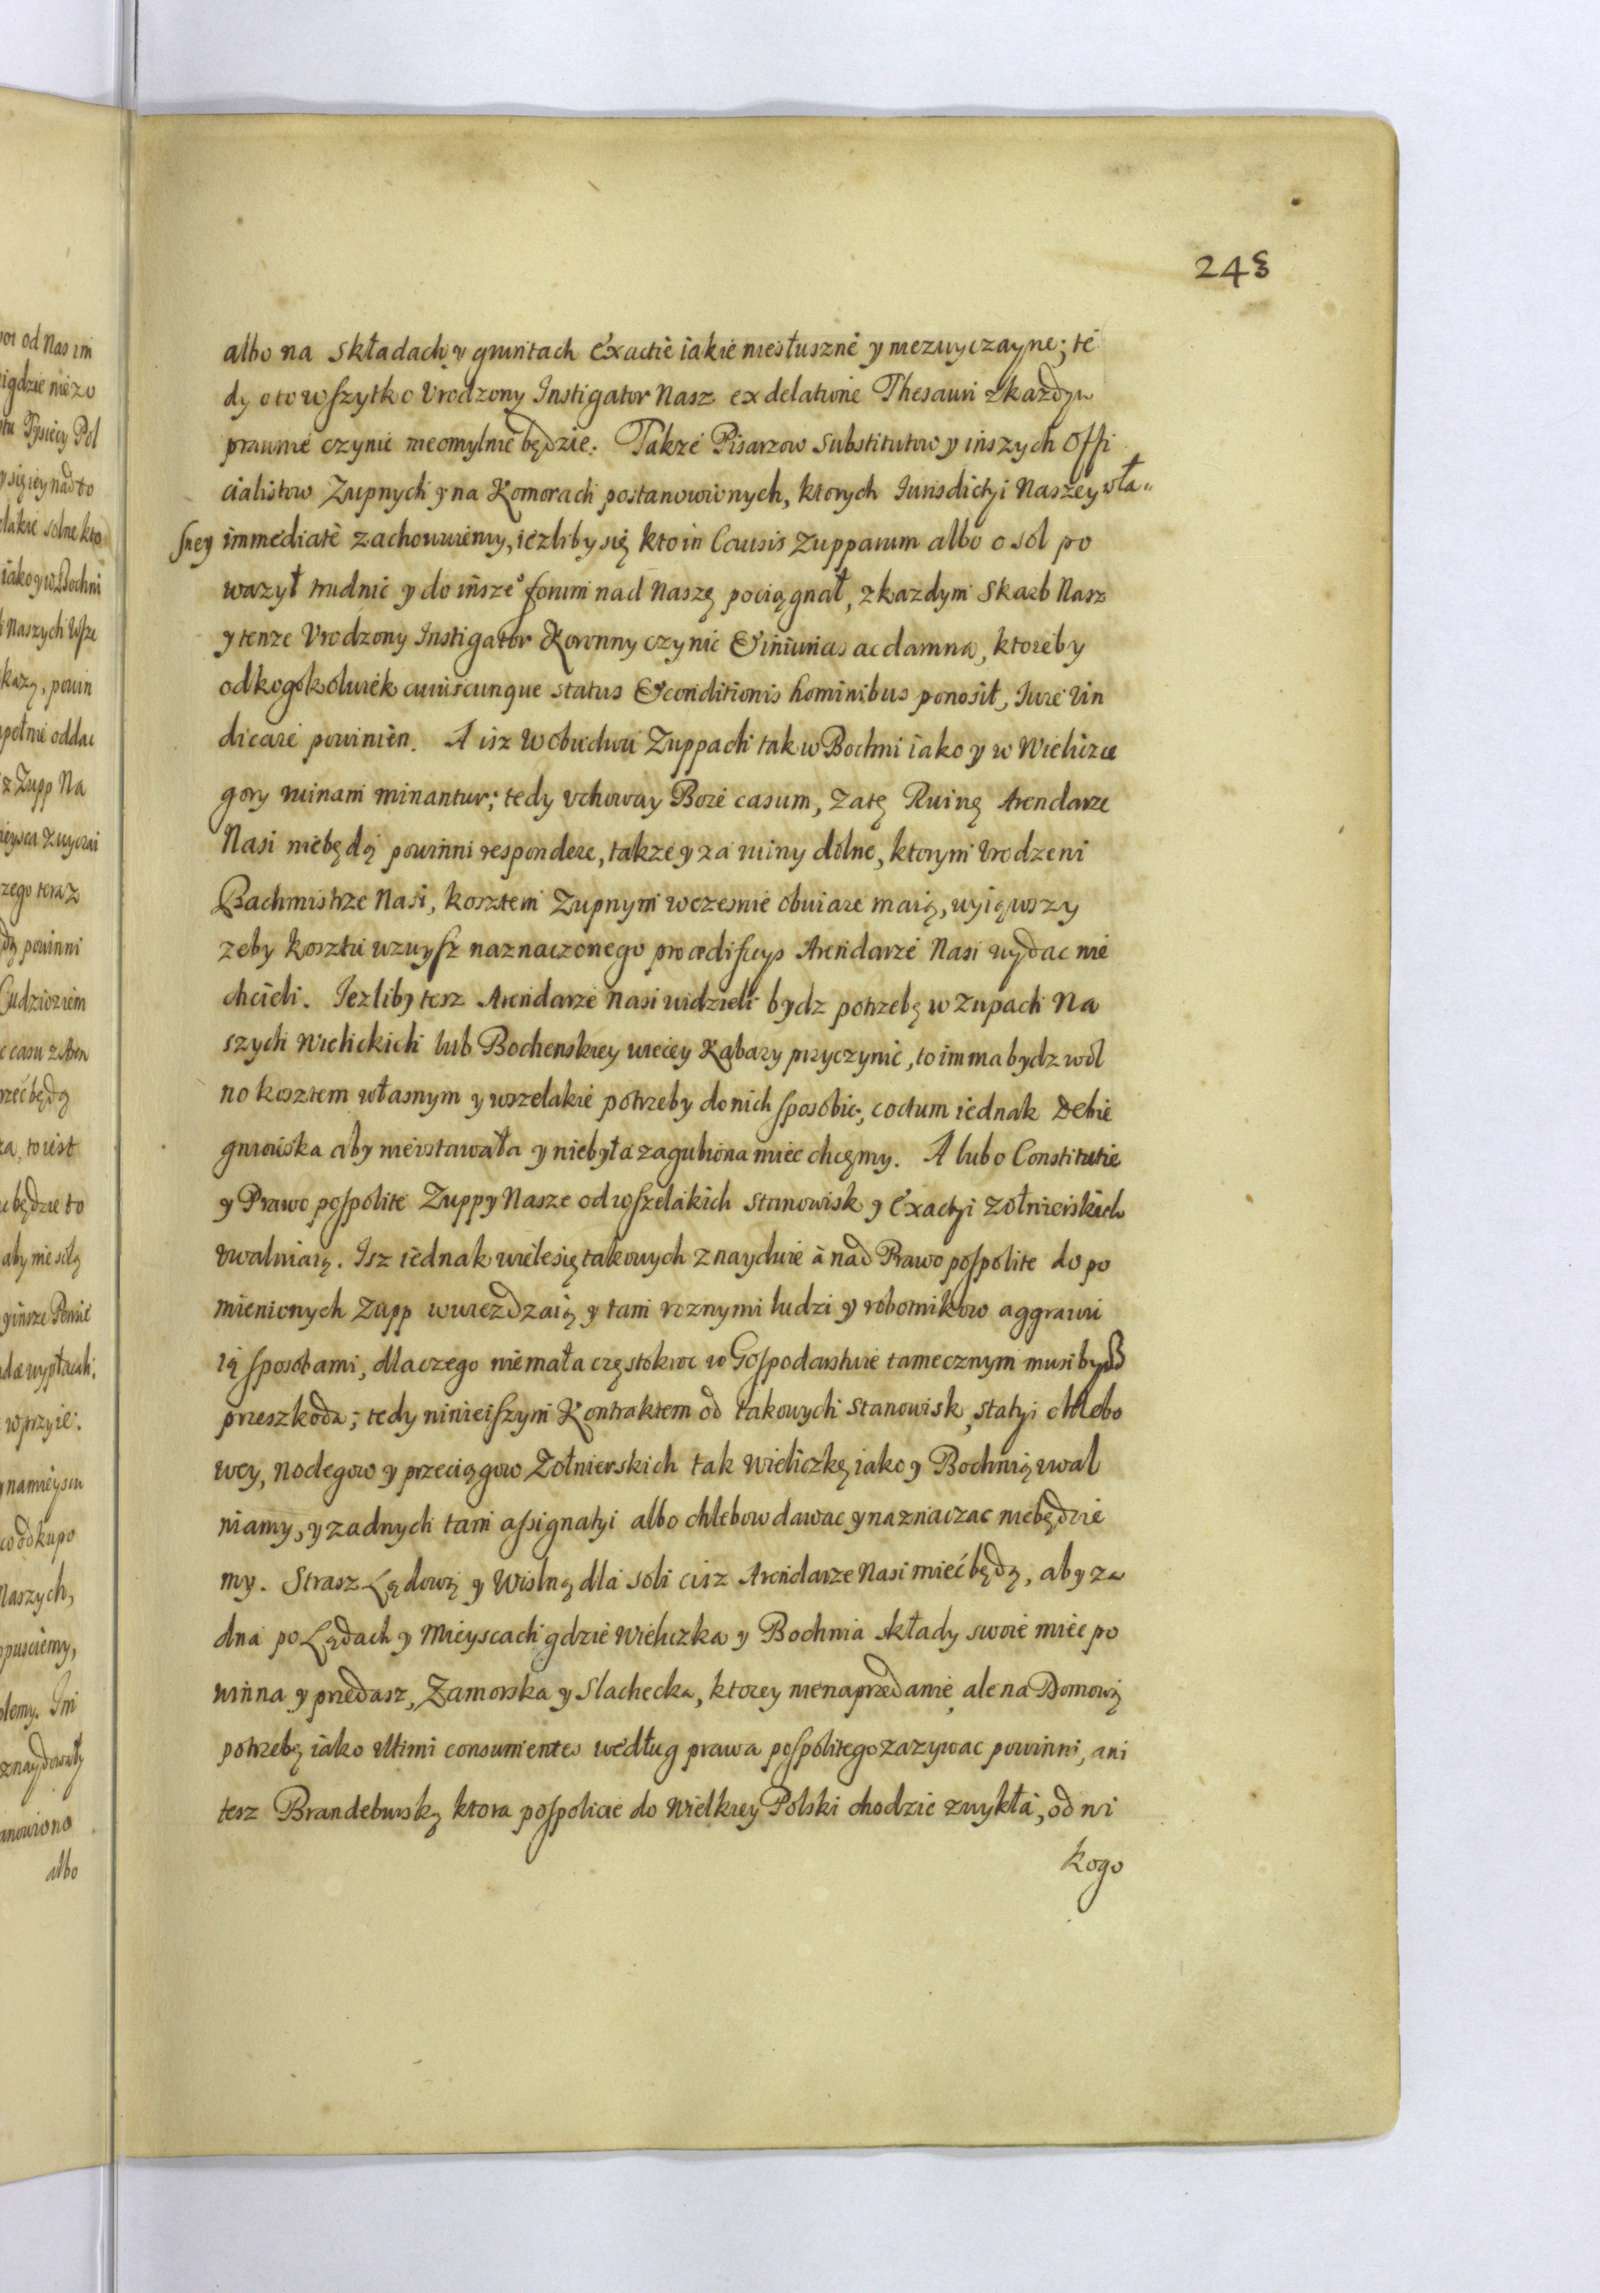 243
albo na składach y gruntach Exactie iakie niesłuszne y niezwyczayne; te
dy o to wszytko Urodzony Instigator Nasz ex delatione Thesauri z każdym
prawnie czynic nieomylnie będzie. Takze Pisarzow Substitutow y inszych Offi
cialistow Zupnych y na Komorach postanowionych, ktorych Iurisdictyi Naszey wła-
sney immediate zachowuiemy, iezliby się kto in Causis Zupparum albo o sol po
wazył trudnic y do insze° forum nad Naszę pociągnął, z kazdym Skarb Nasz
y tenze Vrodzony Instigator Koronny czynic & iniurias ac damna, ktoreby
od kogokolwiek cuiuscunque status & conditionis hominibus ponosił, Iure Vin
dicare powinien. A isz w obudwu Zuppach tak w Bochni iako y w Wieliczce
gory ruinam minantur; tedy vchoway Boze casum, za tę Ruinę Arendarze
Nasi niebędą powinni respondere, takze y za ruiny dolne, ktorym Vrodzeni
Bachmistrze Nasi, kosztem Zupnym wczesnie obuiare maią, wyiąwszy
zeby kosztu wzwysz naznaczonego pro ædificijs Arendarze Nasi wydac nie
chcieli. Iezliby tesz Arendarze Nasi widzieli bydz potrzebę w Zupach Na
szych Wielickich lub Bochenskiey więcey Kąbary przyczynic, to im ma bydz wol
no kosztem własnym y wszelakie potrzeby do nich sposobic, coctum iednak Debie
gniowska aby nieustawała y niebyła zagubiona miec chcęmy. A lubo Constitutie
y Prawo pospolite Zuppy Nasze od wszelakich stanowisk y Exactyi Zołnierskich
vwalniaią. Isz iednak wiele się takowych znayduie à nad Prawo pospolite do po
mienionych Zupp wwiezdzaią y tam roznymi ludzi y robotnikow aggrawu
ią sposobami, dlaczego niemała częstokroc w Gospodarstwie tamecznym musi bydz
przeszkoda; tedy ninieiszym Kontraktem od takowych Stanowisk, statyi chlebo
wey, noclegow y przeciągow Zołnierskich tak Wieliczkę iako y Bochnią uwal
niamy, y zadnych tam assignatyi albo chlebow dawac y naznaczac niebędzie
my. Strasz Lądową y Wislną dla soli ciisz Arendarze Nasi mieć będą, aby za
dna po Lądach y Mieyscach gdzie Wieliczka y Bochnia składy swoie miec po
winna y przedasz, Zamorska y Slachecka, ktorey nie na przedanie, ale na Domową
potrzebę iako ultimi consumentes według prawa pospolitego zazywac powinni, ani
tesz Brandeburską ktora pospolicie do Wielkiey Polski chodzic zwykła, od ni
kogo